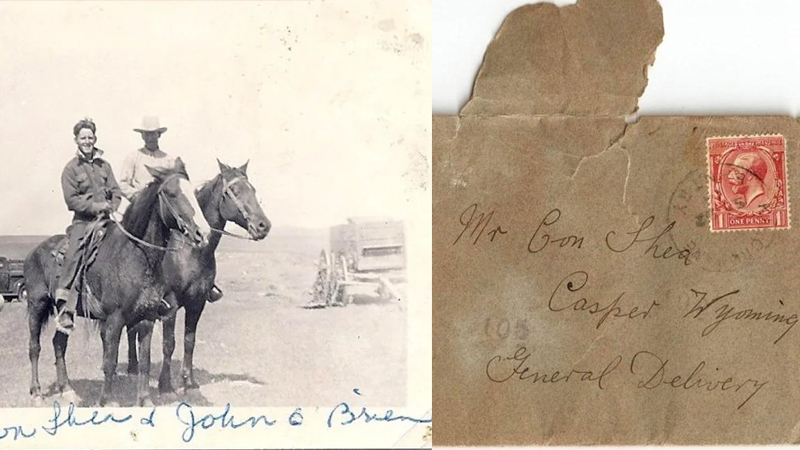 on Shea & John O'Brien
ONE PENNY
1 1
Mr Con Shea
Casper Wyoming
105
General Delivery